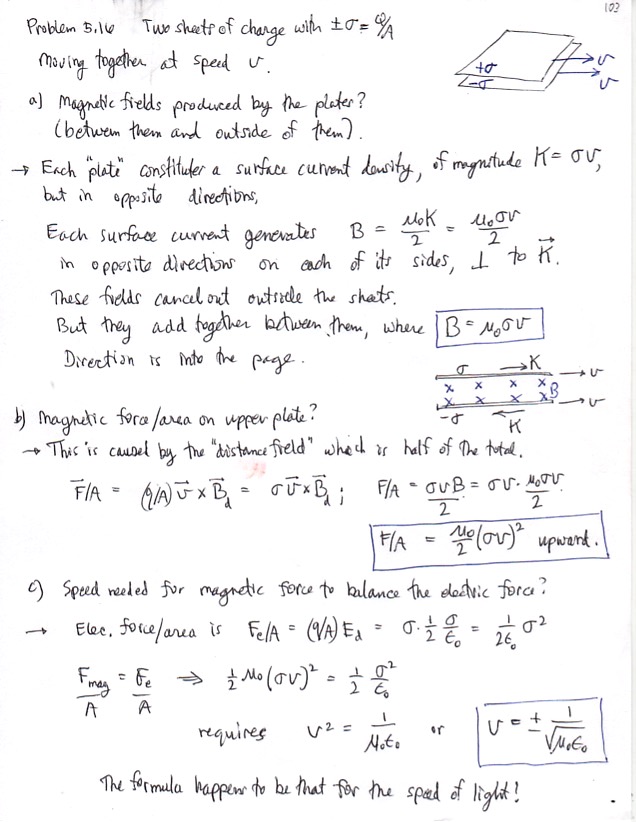 103
Problem 5.16 Two sheets of charge with ±σ = Q/A
moving together at speed v.
+σ
-σ
v
v
a) Magnetic fields produced by the plates?
(between them and outside of them).
→ Each "plate" constitutes a surface current density, of magnitude K = σv,
but in opposite directions,
Each surface current generates B = μ₀K/2 = μ₀σv/2
in opposite directions on each of its sides, ⊥ to K⃗.
These fields cancel out outside the sheets.
But they add together between them, where B = μ₀σv
Direction is into the page.
σ → K → v
x x x x B
x x x x → v
-σ ← K
b) Magnetic force/area on upper plate?
→ This is caused by the "distance field" which is half of the total.
F⃗/A = (q/A) v⃗ × B⃗d = σ v⃗ × B⃗d ; F/A = σvB/2 = σv · μ₀σv/2
F/A = μ₀/2 (σv)² upward.
c) Speed needed for magnetic force to balance the electric force?
→ Elec. force/area is Fe/A = (q/A) Ed = σ · 1/2 σ/ε₀ = 1/2ε₀ σ²
Fmag/A = Fe/A ⇒ 1/2 μ₀(σv)² = 1/2 σ²/ε₀
requires v² = 1/μ₀ε₀ or v = ± 1/√μ₀ε₀
The formula happens to be that for the speed of light!